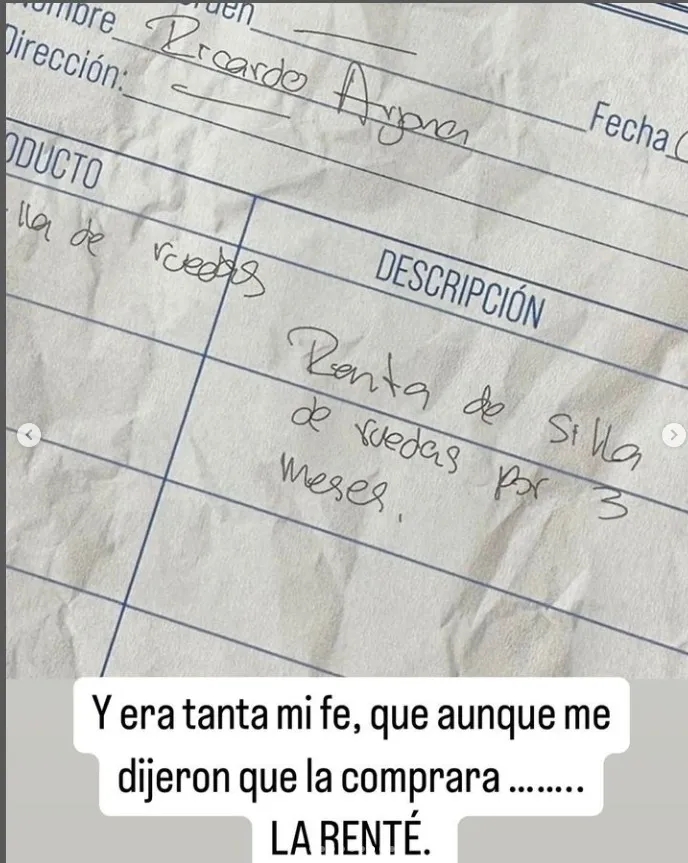 Nombre Ricardo Arjona
Dirección:
Fecha
PRODUCTO
DESCRIPCIÓN
lla de ruedas
Renta de Silla
de ruedas por 3
meses.
Y era tanta mi fe, que aunque me
dijeron que la comprara ........
LA RENTÉ.